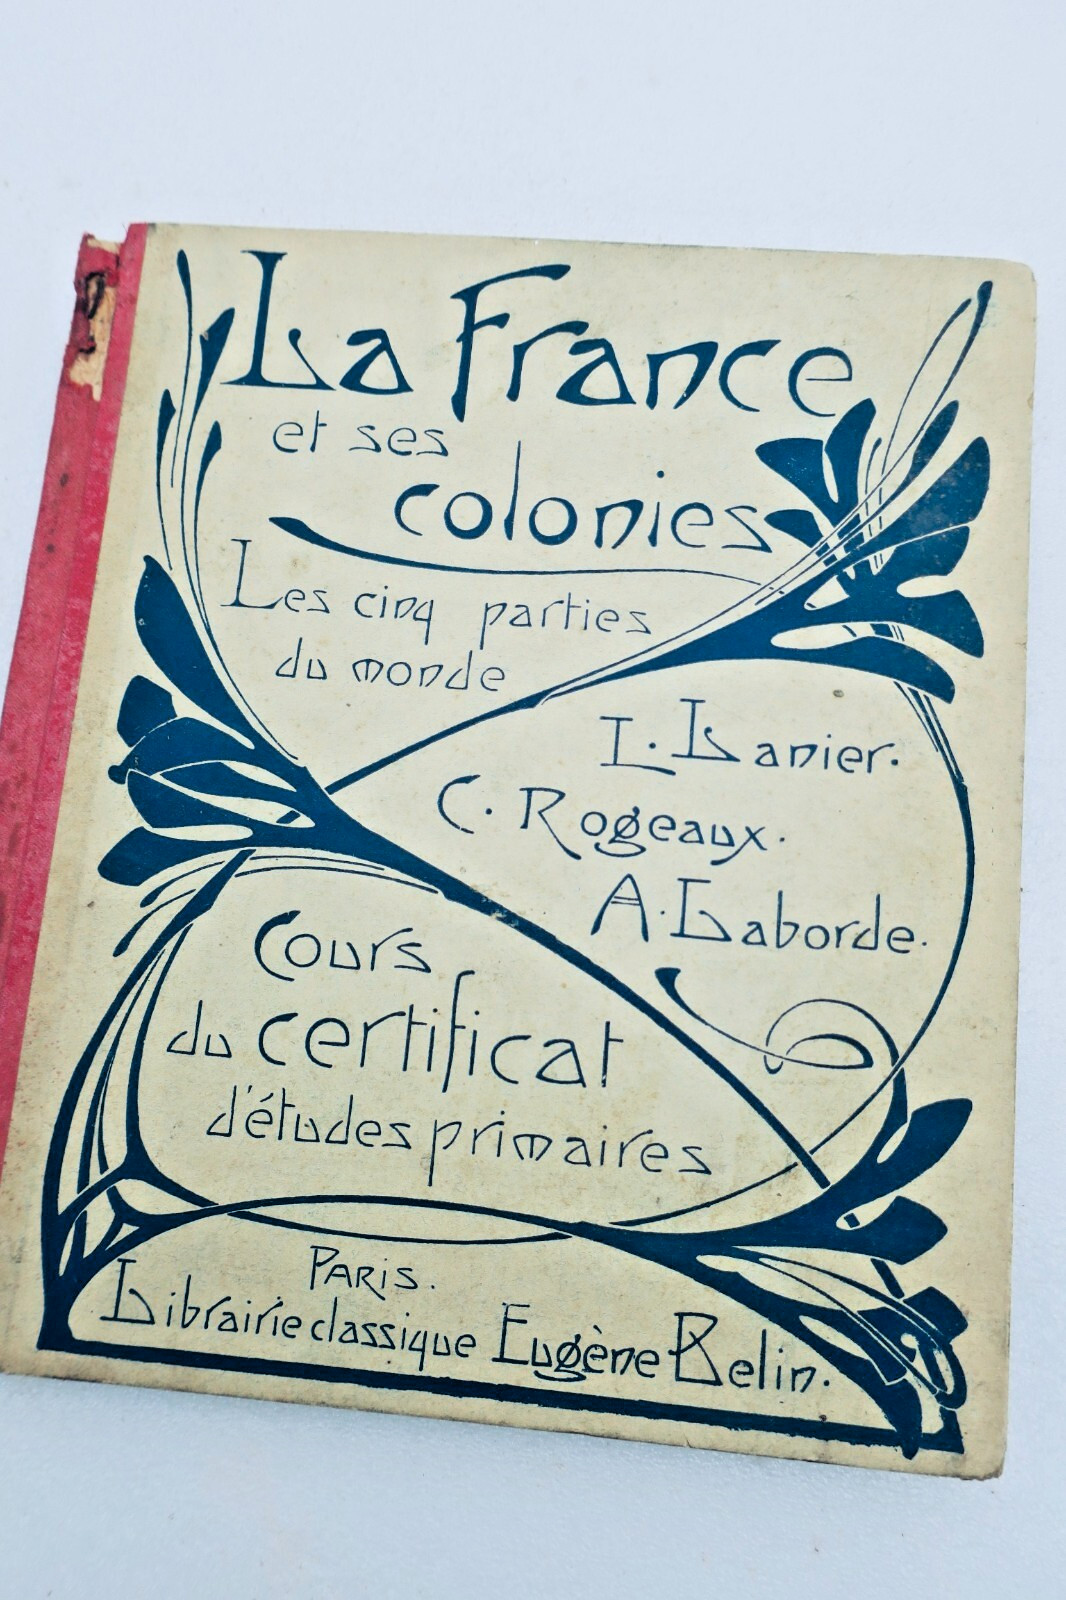 La France
et ses
colonies
Les cinq parties
du monde
L. Lanier.
C. Rogeaux.
A. Laborde.
Cours
du certificat
d'études primaires
PARIS.
Librairie classique Eugène Belin.